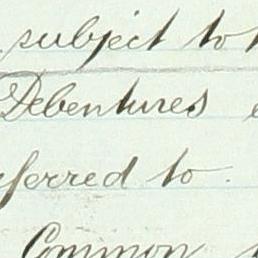 subject to
Debentures
ferred to.
Common